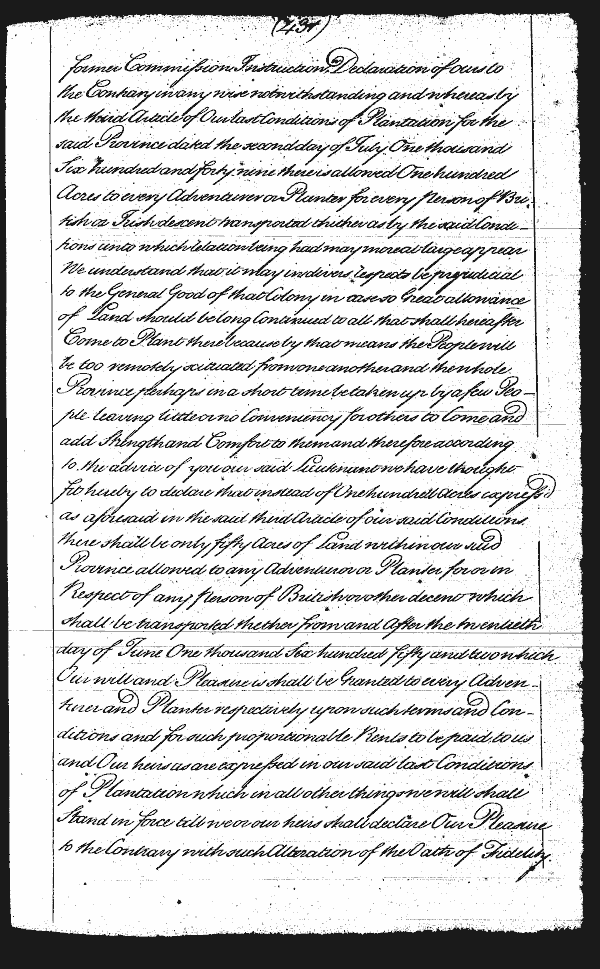 (434)
former Commission Instruction Declaration of ours to
the Contrary in any wise notwithstanding and whereas by
the third Article of Our last Conditions of Plantation for the
said Province dated the second day of July One thousand
Six hundred and forty nine there is allowed One hundred
Acres to every Adventurer or Planter for every Person of Bri-
tish or Irish descent transported thither as by the said Condi-
tions unto which relation being had may more at large appear
We understand that it may in divers respects be prejudicial
to the General Good of that Colony in case so Great allowance
of Land should be long Continued to all that shall hereafter
Come to Plant there because by that means the People will
be too remotely scituated from one another and the whole
Province perhaps in a short time be taken up by a few Peo-
ple leaving little or no Conveniency for others to Come and
add Strength and Comfort to them and therefore according
to the advice of you our said Lieutenant we have thought
fit hereby to declare that instead of One hundred Acres express'd
as aforesaid in the said third Article of our said Conditions
there shall be only fifty Acres of Land within our said
Province allowed to any Adventurer or Planter for or in
Respect of any Person of Brittish or other decent which
shall be transported thether from and After the twentieth
day of June One thousand Six hundred fifty and two which
Our will and Pleasure is shall be Granted to every Adven-
turer and Planter respectively upon such terms and Con-
ditions and for such proportionable Rents to be paid to us
and Our heirs as are expressed in our said last Conditions
of Plantation which in all other things we will shall
Stand in force till we or our heirs shall declare Our Pleasure
to the Contrary with such Alteration of the Oath of Fidelity